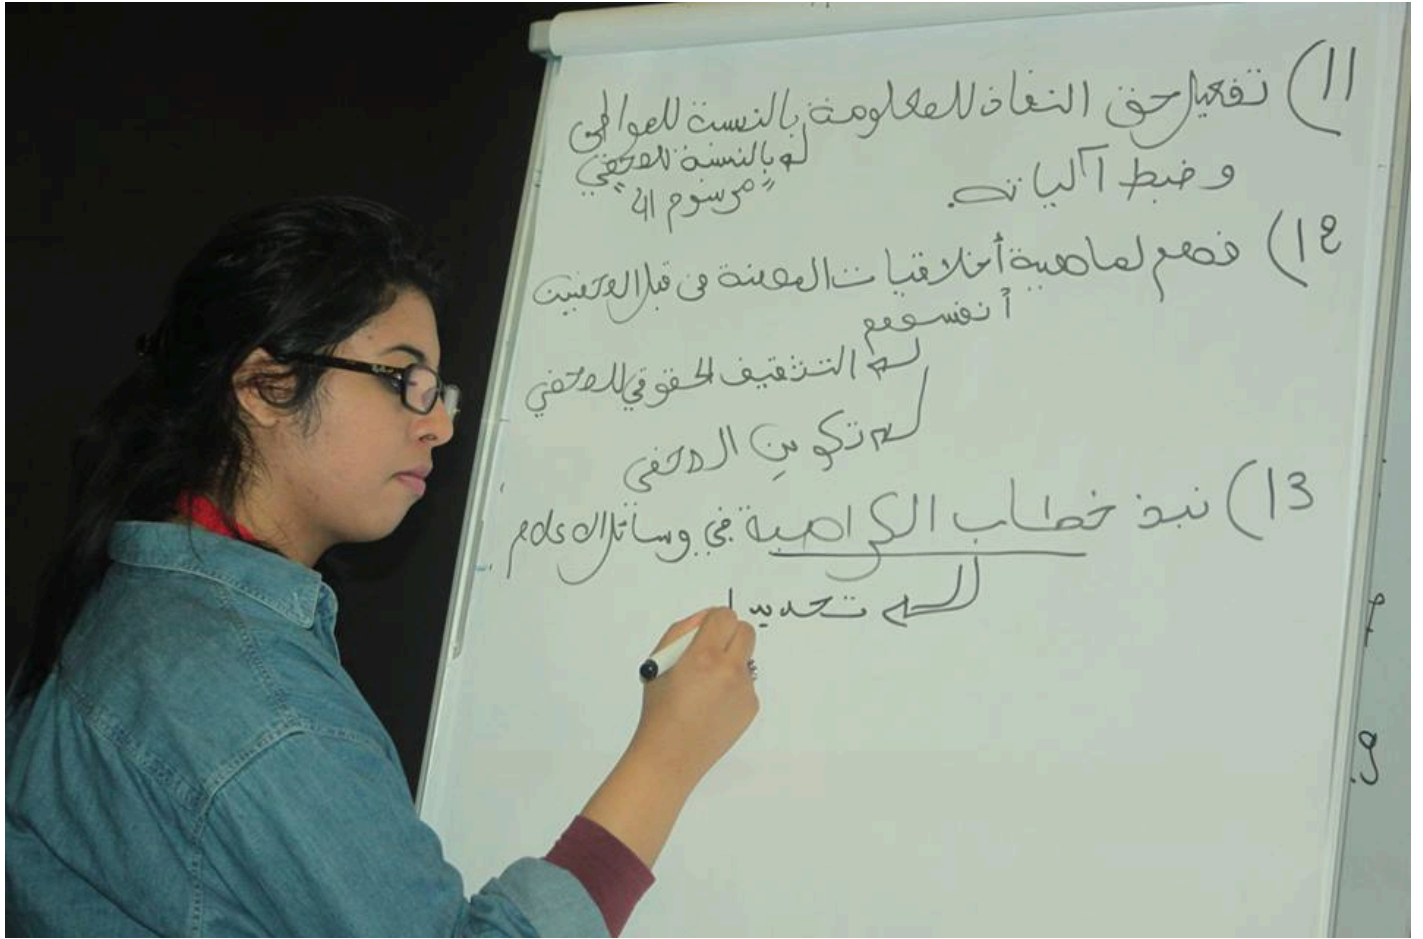 11) تفعيل حق النفاذ للمعلومة بالنسبة للمواطن
وضبط آلياته.
له بالنسبة للصحفي
"مرسوم 41"
12) فهم لماهية أخلاقيات المهنة من قبل الصحفيين
أنفسهم
التثقيف الحقوقي للصحفي
تكوين الصحفي
13) نبذ خطاب الكراهية في وسائل الإعلام
تحديد